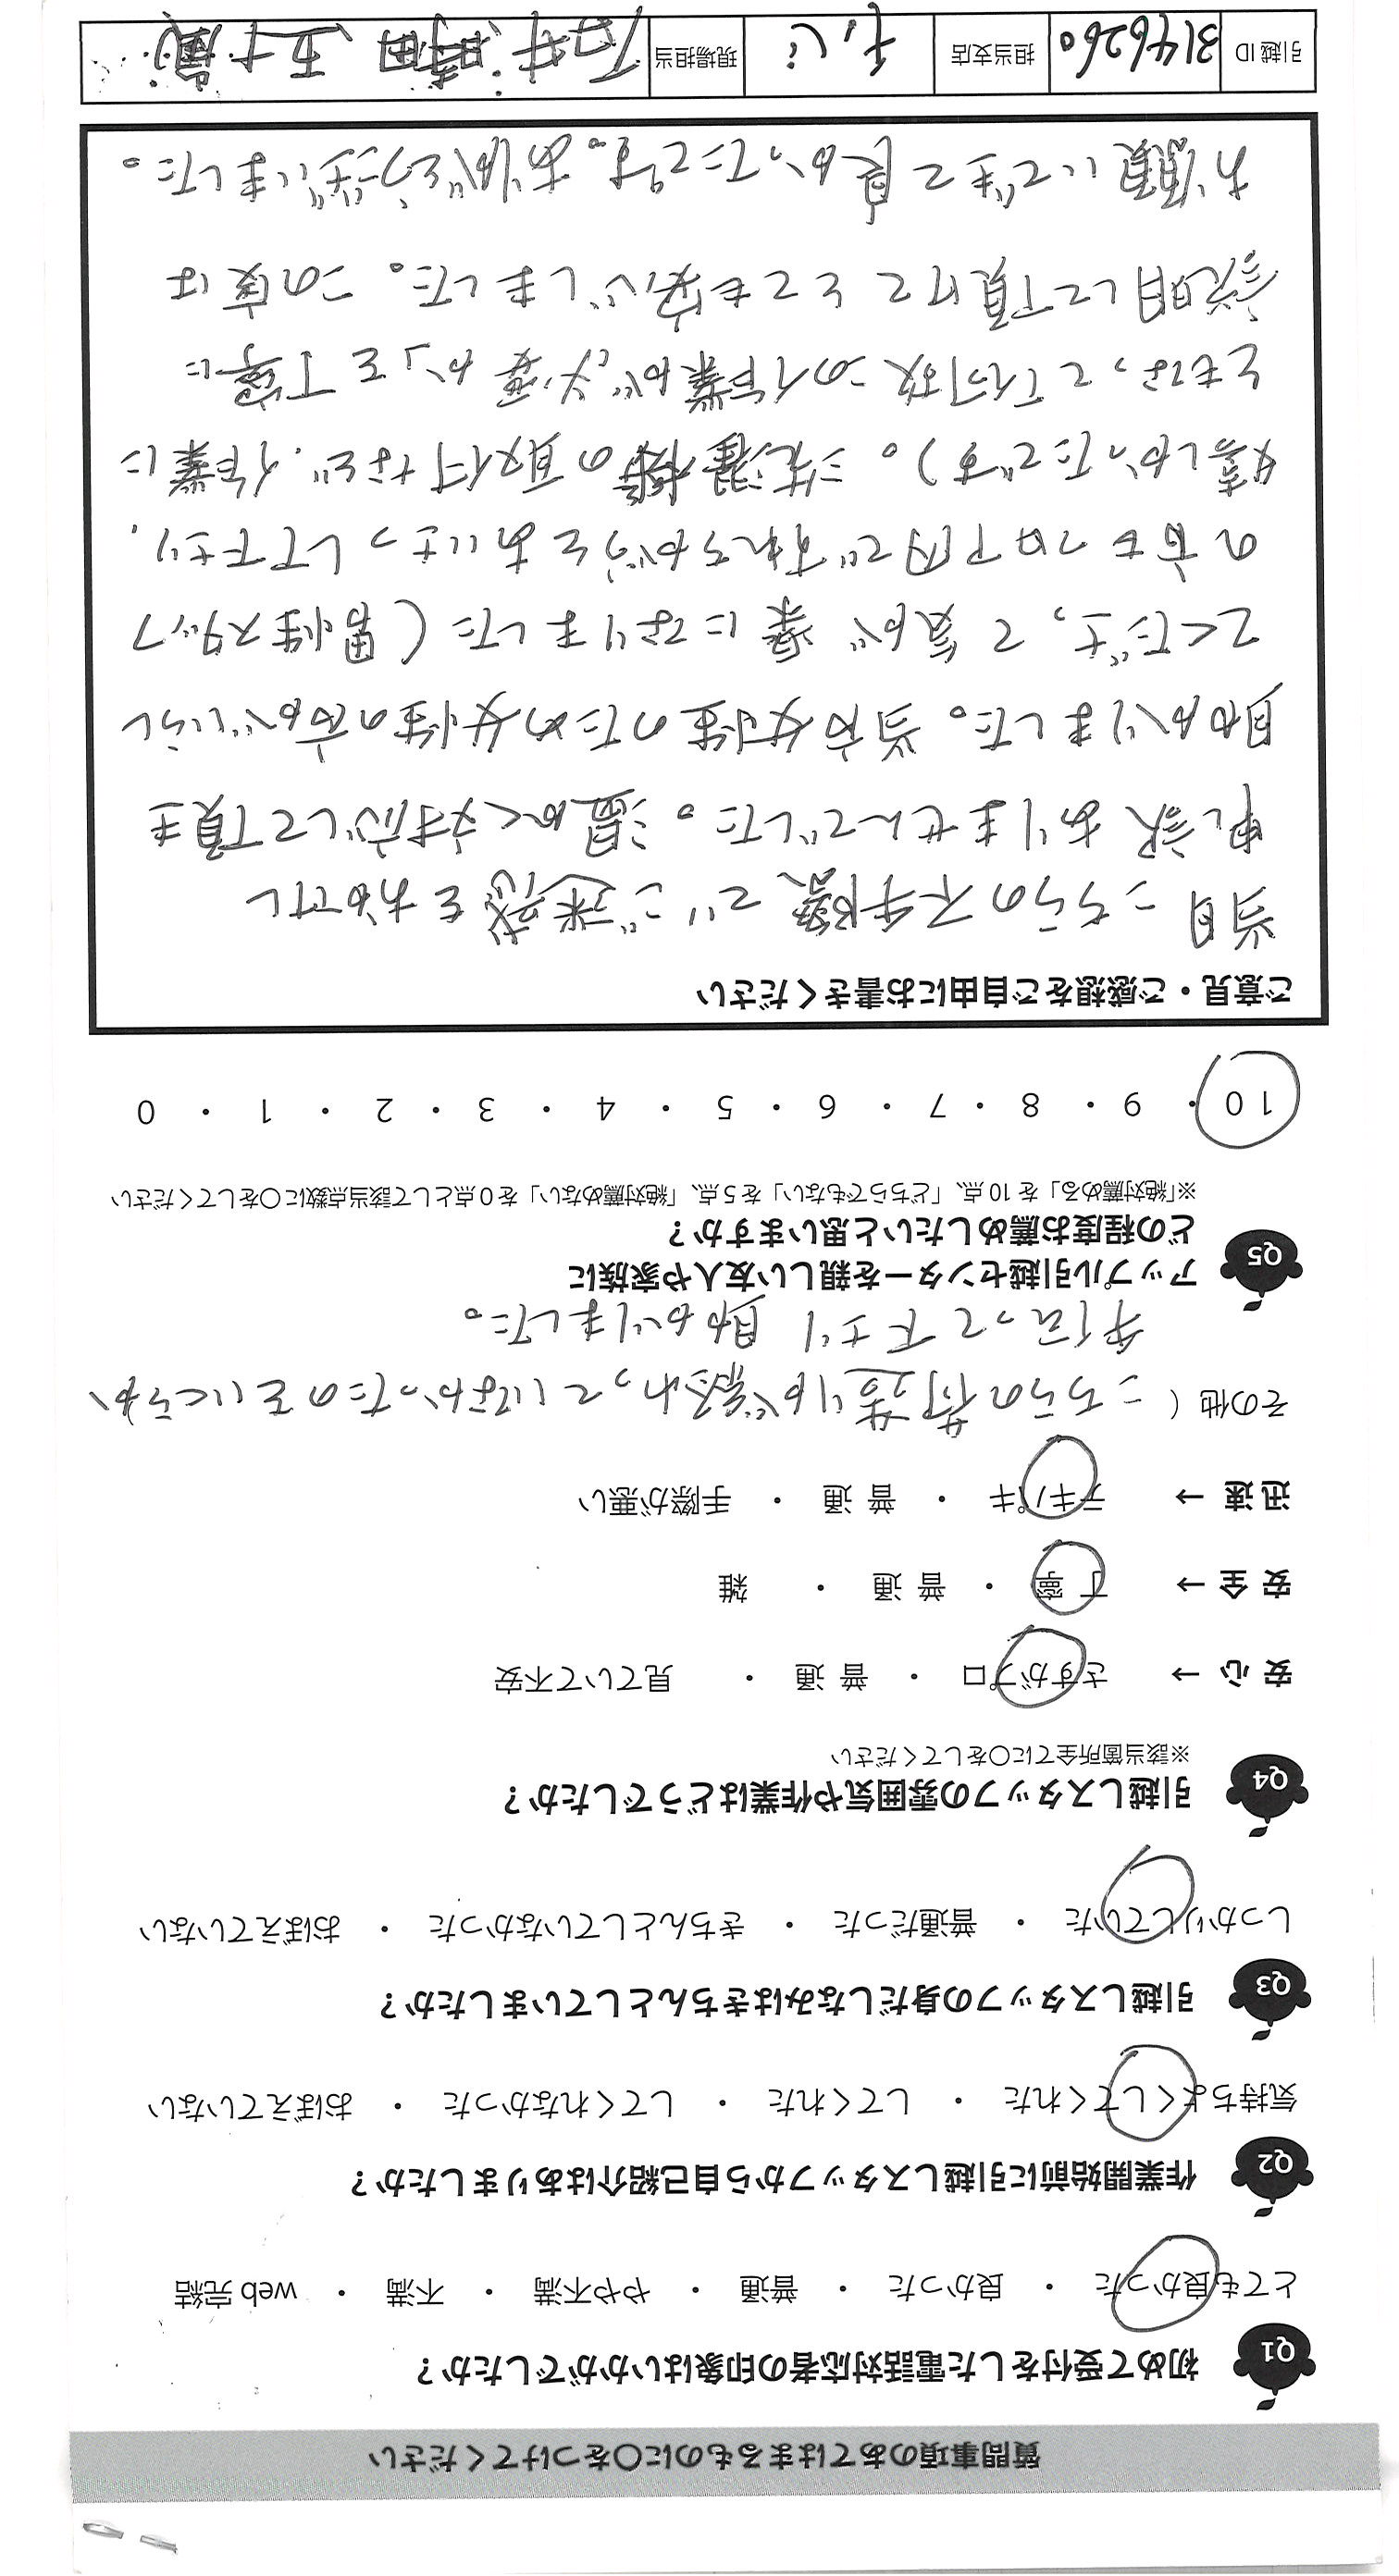 質問事項のあてはまるものに○をつけてください
Q1 初めて受付をした電話対応者の印象はいかがでしたか？
とても良かった ・ 良かった ・ 普通 ・ やや不満 ・ 不満 ・ web 完結
Q2 作業開始前に引越しスタッフから自己紹介はありましたか？
気持ちよくしてくれた ・ してくれた ・ してくれなかった ・ おぼえていない
Q3 引越しスタッフの身だしなみはきちんとしていましたか？
しっかりしていた ・ 普通だった ・ きちんとしていなかった ・ おぼえていない
Q4 引越しスタッフの雰囲気や作業はどうでしたか？
※該当箇所全てに○をしてください
安 心 → さすがプロ ・ 普 通 ・ 見ていて不安
安 全 → 丁 寧 ・ 普 通 ・ 雑
迅 速 → テキパキ ・ 普 通 ・ 手際が悪い
その他（ こちらの荷造りが終わっていなかったのをいくらか
手伝って下さり 助かりました。
Q5 アップル引越センターを親しい友人や家族に
どの程度お薦めしたいと思いますか？
※「絶対薦める」を 10 点、「どちらでもない」を 5 点、「絶対薦めない」を 0 点として該当点数に○をしてください
10 ・ 9 ・ 8 ・ 7 ・ 6 ・ 5 ・ 4 ・ 3 ・ 2 ・ 1 ・ 0
ご意見・ご感想をご自由にお書きください
当日こちらの不手際で ご迷惑をおかけし
申し訳ありませんでした。温かく対応して頂き
助かりました。当方女性のため女性の方がいらし
てくださって気が楽になりました（男性スタッフ
の方もフロア内ですれちがうとあいさつして下さり、
嬉しかったです）。洗濯機の取付など、作業に
ともなって「何故この作業が必要か」を丁寧に
説明して頂けてとても安心しました。この度は
お願いできて良かったです。ありがとうございました。
引越 ID 3146260 担当支店 現場担当 石井 時田 五十嵐